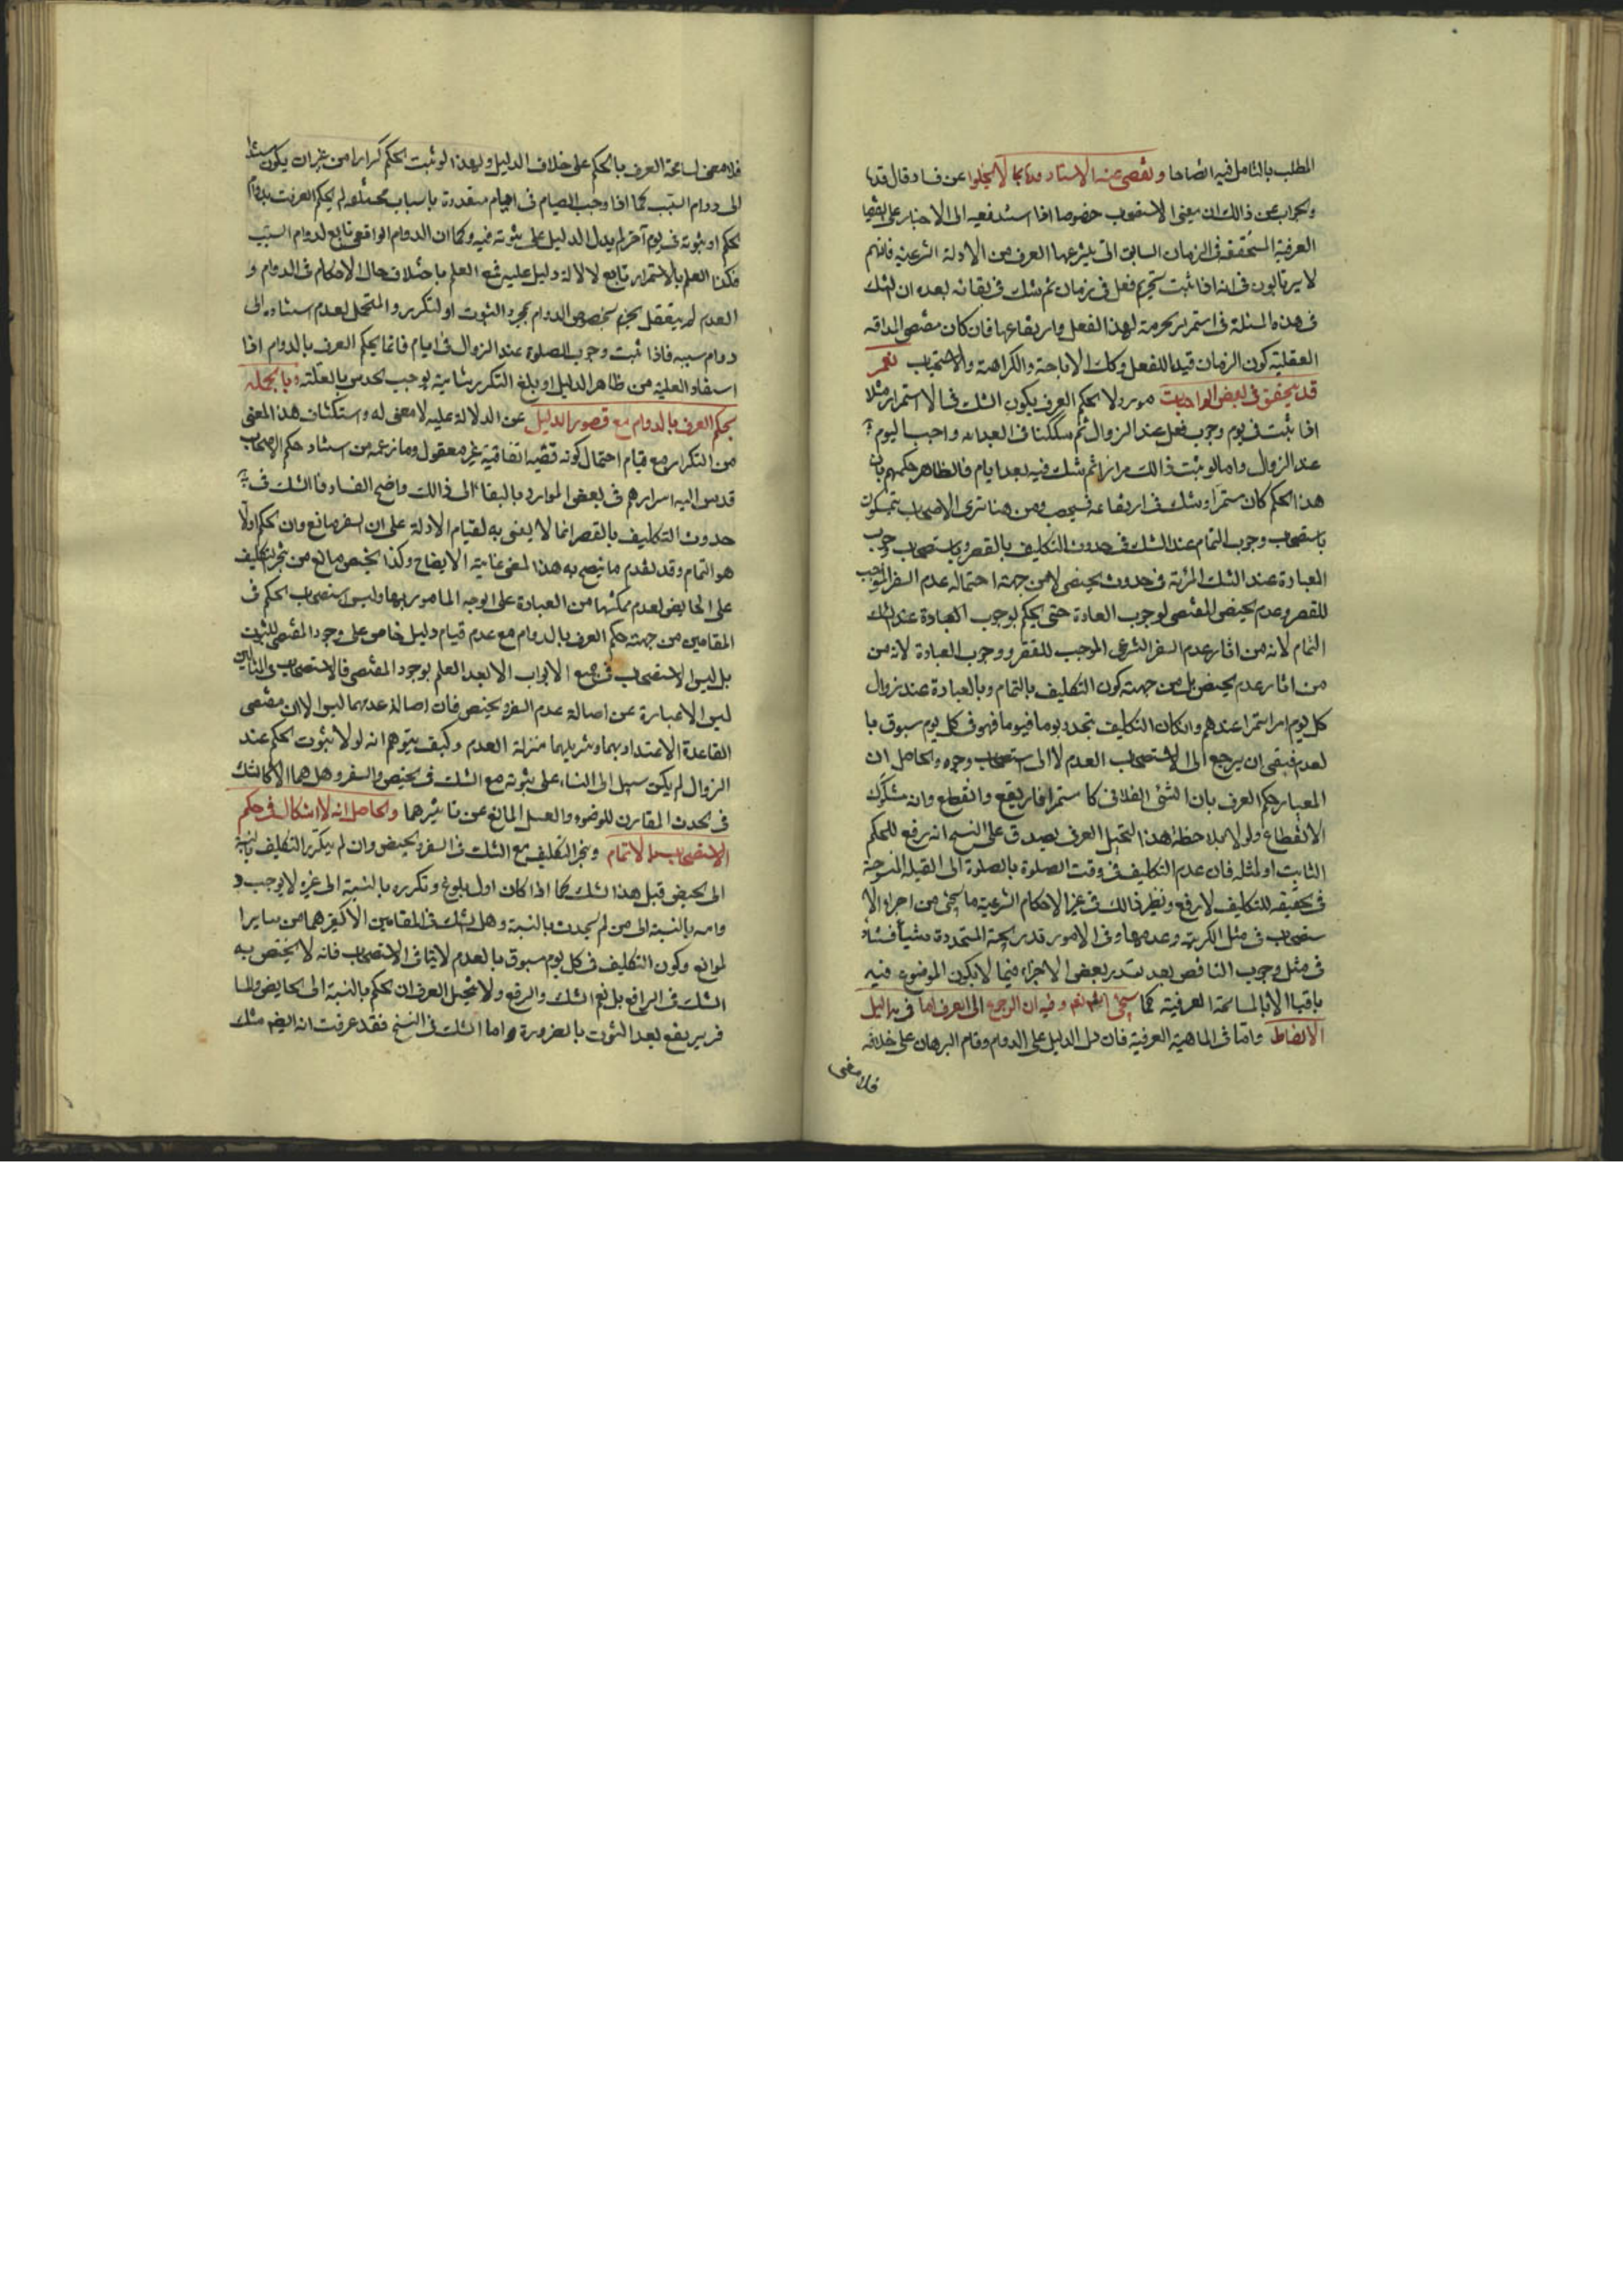 المطلب بالتامل فيه اتضاحا وتفصى عنه الاستاد بما لا يخلوا عن فساد قال قدها
والجواب عن ذالك ان معنى الاستصحاب خصوصا اذا استند فيه الى الاخبار على القضايا
العرفية المتحققة فى الزمان السابق التى ينتزعها العرف من الادلة الشرعية فانهم
لا يرتابون فى انه اذا ثبت تحريم فعل فى زمان ثم شك فى بقائه بعده ان الشك
فى هذه المسئلة فى استمرار الحرمة لهذا الفعل وارتفاعها فان كان مقتضى المداقه
العقلية كون الزمان قيدا للفعل وكك الاباحة والكراهة والاستحباب نعم
قد يتحقق فى بعض الواجبات مورد لا يحكم العرف بكون الشك فى الاستمرار مثلا
اذا ثبت فى يوم وجوب فعل عند الزوال ثم شككنا فى الغد انه واجب اليوم
عند الزوال واما لو ثبت ذالك مرارا ثم شك فيه بعد ايام فالظاهر حكمهم بان
هذا الحكم كان مستمرا وشك فى ارتفاعه فيستصحب ومن هنا ترى الاصحاب يتمسكون
باستصحاب وجوب التمام عند الشك فى حدوث التكليف بالقصر وباستصحاب وجوب
العبادة عند الشك المرئة فى حدوث الحيض لا من جهة احتماله عدم السفر الموجب
للقصر وعدم الحيض المقتضى لوجوب العادة حتى يحكم بوجوب العبادة عند الشك
التمام لانه من اثار عدم السفر الشرعى الموجب للقصر ووجوب العبادة لانه من
من اثار عدم الحيض بل من جهة كون التكليف بالتمام وبالعبادة عند زوال
كل يوم امرا مستمرا عندهم وانكان التكليف يتجدد يوما فيوما فهو فى كل يوم سبوق با
لعدم فينبغى ان يرجع الى الاستصحاب العدم لا الى استصحاب وجوه والحاصل ان
المعيار حكم العرف بان الشئى الفلانى كا ستمرا فارتفع وانقطع وانه مشكوك
الانقطاع ولولا ملاحظة هذا التخيل العرفى يصدق على النسخ انه رفع للحكم
الثابت او لمثله فان عدم التكليف فى وقت الصلوة بالصلوة الى القبلة المنسوخة
فى الحقيقه للتكليف لا رفع ونظير ذالك فى غير الاحكام الشرعية ما سيجئى من اجراء الا
ستصحاب فى مثل الكرية وعدمها وفى الامور التدريجية المتجددة شيئا فشيئا
فى مثل وجوب الناقص بعد تعذر بعض الاجزاء فيما لا يكون الموضوع فيه
باقيا الا بالمسامحة العرفية كما سيجئى انتهى وفيه ان الرجوع الى العرف اما فى مداليل
الالفاظ واما فى الماهية العرفية فان دل الدليل على الدوام وقام البرهان على خلافه
فلا معنى
فلا معنى لمسامحة العرف بالحكم على خلاف الدليل ولهذا لو ثبت الحكم كرارا من غير ان يكون مستندا
الى دوام السبب كما اذا وجب الصيام فى ايام متعددة باسباب مختلفه لم يحكم العرف بدوام
الحكم او ثبوته فى يوم آخر لم يدل الدليل على ثبوته فيه وكما ان الدوام الواقعى تابع لدوام السبب
فكذا العلم بالاستمرار تابع لدلالة دليل عليه فمع العلم باختلاف حال الاحكام فى الدوام و
العدم لم يتعقل الجزم بخصوص الدوام بمجرد الثبوت او لتكرر والمتحمل لعدم استناده الى
دوام سببه فاذا ثبت وجوب الصلوة عند الزوال فى ايام فانما يحكم العرف بالدوام اذا
استفاد العلية من ظاهر الدليل او بلغ التكرر بمثابة يوجب الحدس بالعلة وبالجملة
حكم العرف بالدوام مع قصور الدليل عن الدلالة عليه لا معنى له واستكشاف هذا المعنى
من التكرار مع قيام احتمال كونه قضية اتفاقية غير معقول وما زعمه من استناد حكم الاصحاب
قدس اليه اسرارهم فى بعض الموارد بالبقاء الى ذالك واضح الفساد فان الشك فى
حدوث التكليف بالقصر انما لا يعنى به لقيام الادلة على ان السفر مانع وان الحكم اولا
هو التمام وقد تقدم ما يتضح به هذا المعنى غاية الايضاح وكذا الحيض مانع من تنجز التكليف
على الحايض لعدم تمكنها من العبادة على الوجه المامور بها وليس استصحاب الحكم فى
المقامين من جهة حكم العرف بالدوام مع عدم قيام دليل خاص على وجود المقتضى للثبوت
بل ليس الاستصحاب فى جميع الابواب الا بعد العلم بوجود المقتضى فالاستصحاب فى المثالين
ليس الا عبارة عن اصالة عدم السفر والحيض فان اصالة عدمهما ليس الا ان مقتضى
القاعدة الاعتداد بهما وتنزيلهما منزلة العدم وكيف يتوهم انه لولا ثبوت الحكم عند
الزوال لم يكن سبيل الى البناء على ثبوته مع الشك فى الحيض والسفر وهل هما الا كالشك
فى الحدث المقارن للوضوء والغسل المانع عن تاثيرهما والحاصل انه لا اشكال فى حكم
الاستصحاب الاتمام وتنجز التكليف مع الشك فى السفر والحيض وان لم يتكرر التكليف بالنسبة
الى الحيض قبل هذا الشك كما اذا كان اول بلوغ وتكرره بالنسبة الى غيره لا يوجب د
وامه بالنسبة الى من لم يحدث بالنسبة وهل الشك فى المقامين الا كغيرهما من سايرا
لموانع وكون التكليف فى كل يوم سبوق بالعدم لا ينافى الاستصحاب فانه لا يختص به
الشك فى الرافع بل يعم الشك والرفع ولا يتخيل العرف ان الحكم بالنسبة الى الحايض والمسا
فر يرتفع بعد الثبوت بالضرورة واما الشك فى النسخ فقد عرفت انه ايضا مثله